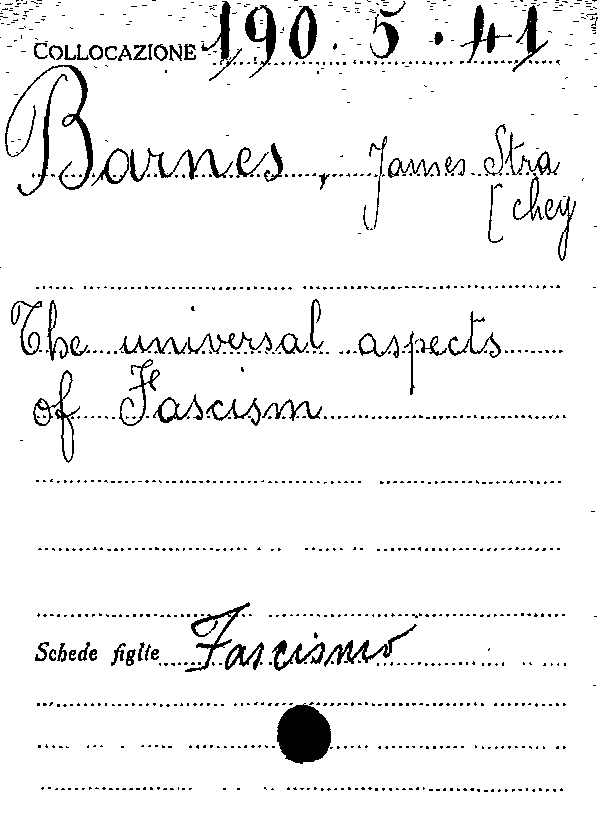 COLLOCAZIONE 190.5.41
Barnes, James Stra
[chey
The universal aspects
of Fascism
Schede figlie Fascismo